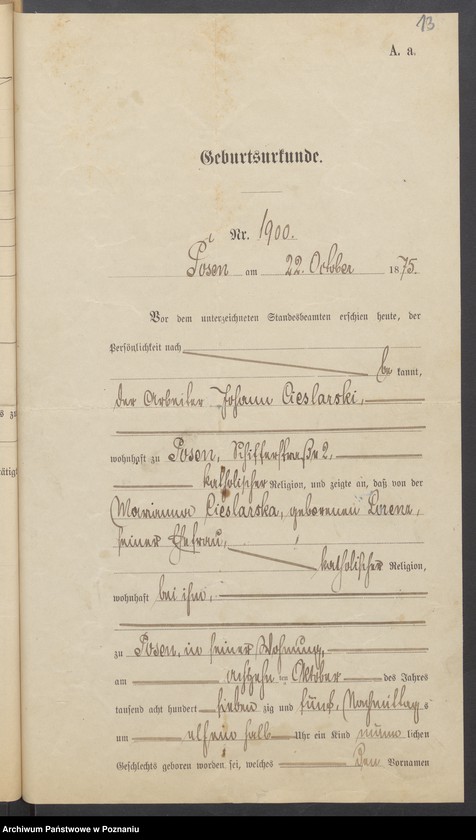 13
A. a.
Geburtsurkunde.
Nr. 1900.
Posen am 22. October 1875.
Vor dem unterzeichneten Standesbeamten erschien heute, der
Persönlichkeit nach
be kannt,
der Arbeiter Johann Cieslarski,
wohnhaft zu Posen, Schifferstraße 2,
katholischer Religion, und zeigte an, daß von der
Marianna Cieslarska, geborenen Lorenz,
seiner Ehefrau,
katholischer Religion,
wohnhaft bei ihm,
zu Posen, in seiner Wohnung,
am achtzehn ten Oktober des Jahres
tausend acht hundert sieben zig und fünf, Nachmittag s
um elf ein halb Uhr ein Kind männ lichen
Geschlechts geboren worden sei, welches den Vornamen
Archiwum Państwowe w Poznaniu